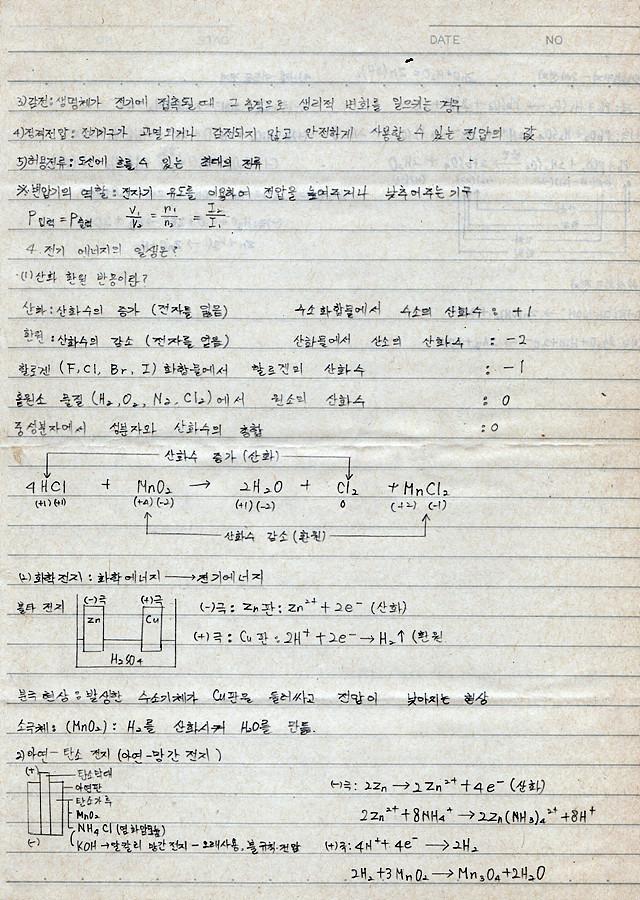 DATE NO
3)감전:생명체가 전기에 접촉될때 그 충격으로 생리적 변화를 일으키는 경우
4)정격전압:전기기구가 과열되거나 감전되지 않고 안전하게 사용할 수 있는 전압의 값
5)허용전류:도선에 흐를 수 있는 최대의 전류
※변압기의 역할:전자기 유도를 이용하여 전압을 높여주거나 낮추어주는기구
P입력=P출력 V₁/V₂ = n₁/n₂ = I₂/I₁
4. 전기 에너지의 일생은?
(1)산화 환원 반응이란?
산화:산화수의 증가 (전자를 잃음) 수소화합물에서 수소의 산화수 : +1
환원:산화수의 감소 (전자를 얻음) 산화물에서 산소의 산화수 : -2
할로겐 (F, Cl, Br, I) 화합물에서 할로겐의 산화수 : -1
홑원소 물질 (H₂, O₂, N₂, Cl₂)에서 원소의 산화수 : 0
중성분자에서 성분자와 산화수의 총합 : 0
산화수 증가 (산화)
4HCl + MnO₂ → 2H₂O + Cl₂ + MnCl₂
(+1)(-1) (+4)(-2) (+1)(-2) 0 (+2) (-1)
산화수 감소 (환원)
(2)화학전지:화학에너지 → 전기에너지
볼타 전지 (-)극 (+)극 (-)극: Zn판: Zn²⁺ + 2e⁻ (산화)
Zn Cu (+)극: Cu판: 2H⁺ + 2e⁻ → H₂↑ (환원
H₂SO₄
분극현상:발생한 수소기체가 Cu판을 둘러싸고 전압이 낮아지는 현상
소극제: (MnO₂): H₂를 산화시켜 H₂O를 만듦.
2)아연-탄소 전지 (아연-망간 전지)
(+) 탄소막대 (-)극: 2Zn → 2Zn²⁺ + 4e⁻ (산화)
아연판
탄소가루 2Zn²⁺ + 8NH₄⁺ → 2Zn(NH₃)₄²⁺ + 8H⁺
MnO₂
NH₄Cl (염화암모늄)
(-) KOH → 알칼리 망간전지 - 오래사용, 불규칙전압 (+)극: 4H⁺ + 4e⁻ → 2H₂
2H₂ + 3MnO₂ → Mn₃O₄ + 2H₂O